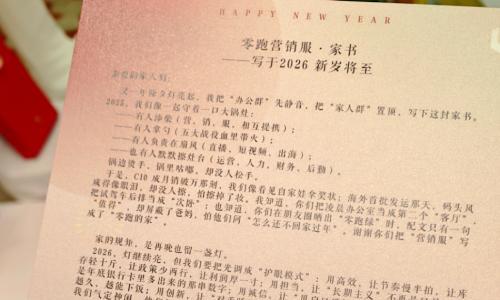 HAPPY NEW YEAR
零跑营销服·家书
——写于2026 新岁将至
亲爱的家人们：
又一年除夕灯亮起，我把“办公群”先静音，把“家人群”置顶，写下这封家书。
2025，我们像一起守着一口大锅灶：
——有人添柴（营、销、服，相互提携）；
——有人拿勺（五大战役血里带火）；
——有人负责在扇风（直播、短视频、出海）；
——也有人默默擦灶台（运营、人力、财务、后勤）。
锅边烫手，锅里咕嘟，却没人松手。
于是，C10 成月销破万那刻，我们像看见自家娃拿奖状；海外首批发运那天，码头风
咸得像眼泪，却没人擦，怕擦掉了妆。我知道，你们把凌晨办公室当成第二个“客厅”，
把试驾车后排当成“次卧”；也知道，你们在朋友圈晒出“零跑绿”时，配文只有一句
“值得”，却屏蔽了爸妈，怕他们问“怎么还不回家过年”。谢谢你们把“营销服”写
成了“零跑的家”。
家的规矩，是再晚也留一盏灯。
2026，灯继续亮，但我们要把先调成“护眼模式”：用高效，让节奏慢半拍，让库
存轻十斤，让政策少两行，让利润厚一寸；用担当，让“长期主义”不
是年底银行卡里多出来的那串数字；用诚信，让
越久，越能下饭；用创新，让
我们气定神闲，